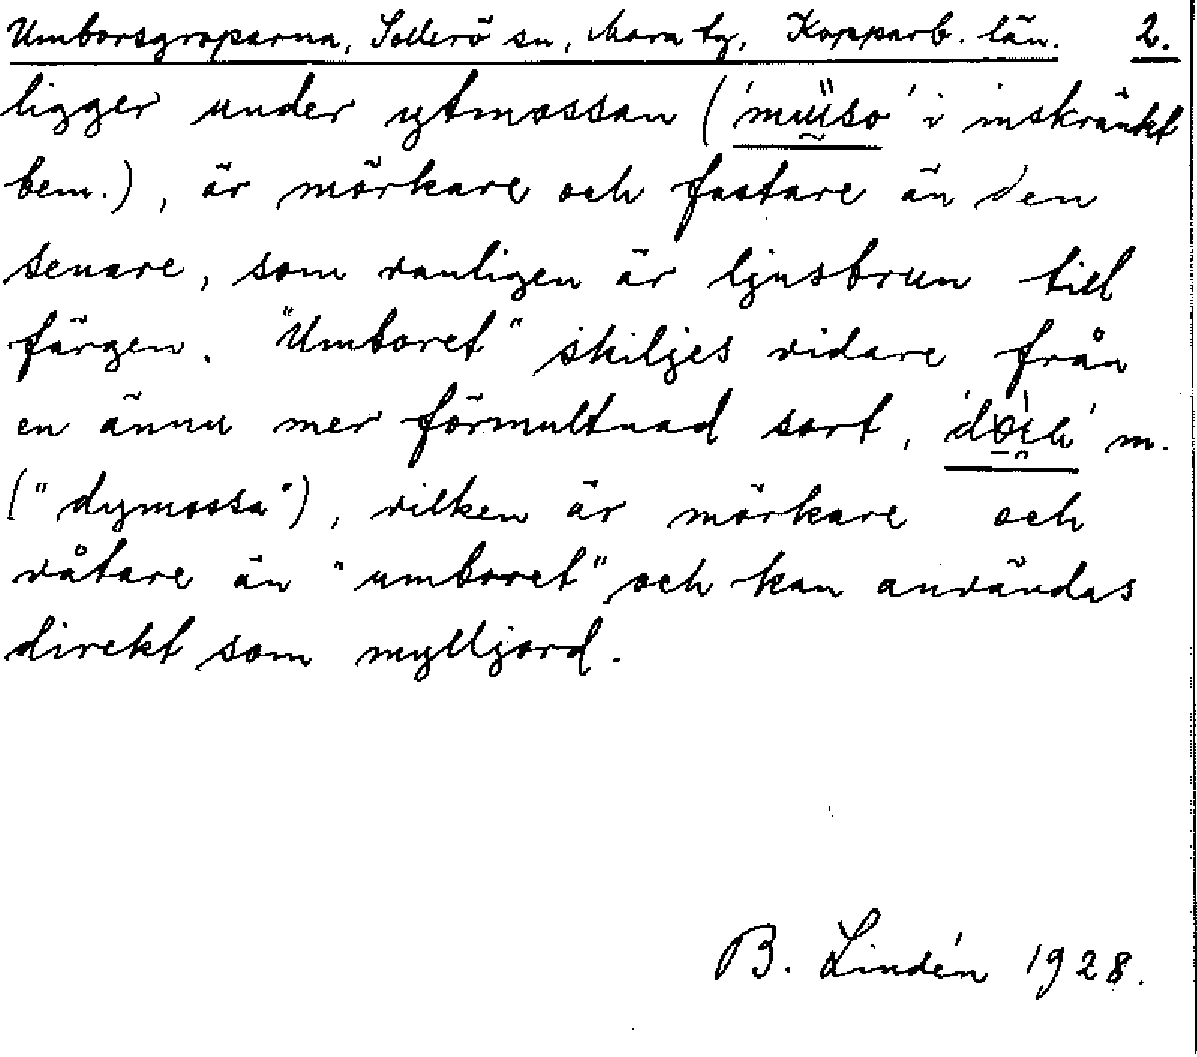 Umborsgroparna, Sollerö sn, Mora tg, Kopparb. län. 2.
ligger under ytmossan ('müso' i inskränkt
bem.), är mörkare och fastare än den
senare, som vanligen är ljusbrun till
färgen. "Umboret" skiljes vidare från
en ännu mer förmultnad sort, m.
("dymossa"), vilken är mörkare och
våtare än "umboret" och kan användas
direkt som mylljord.
B. Lindén 1928.